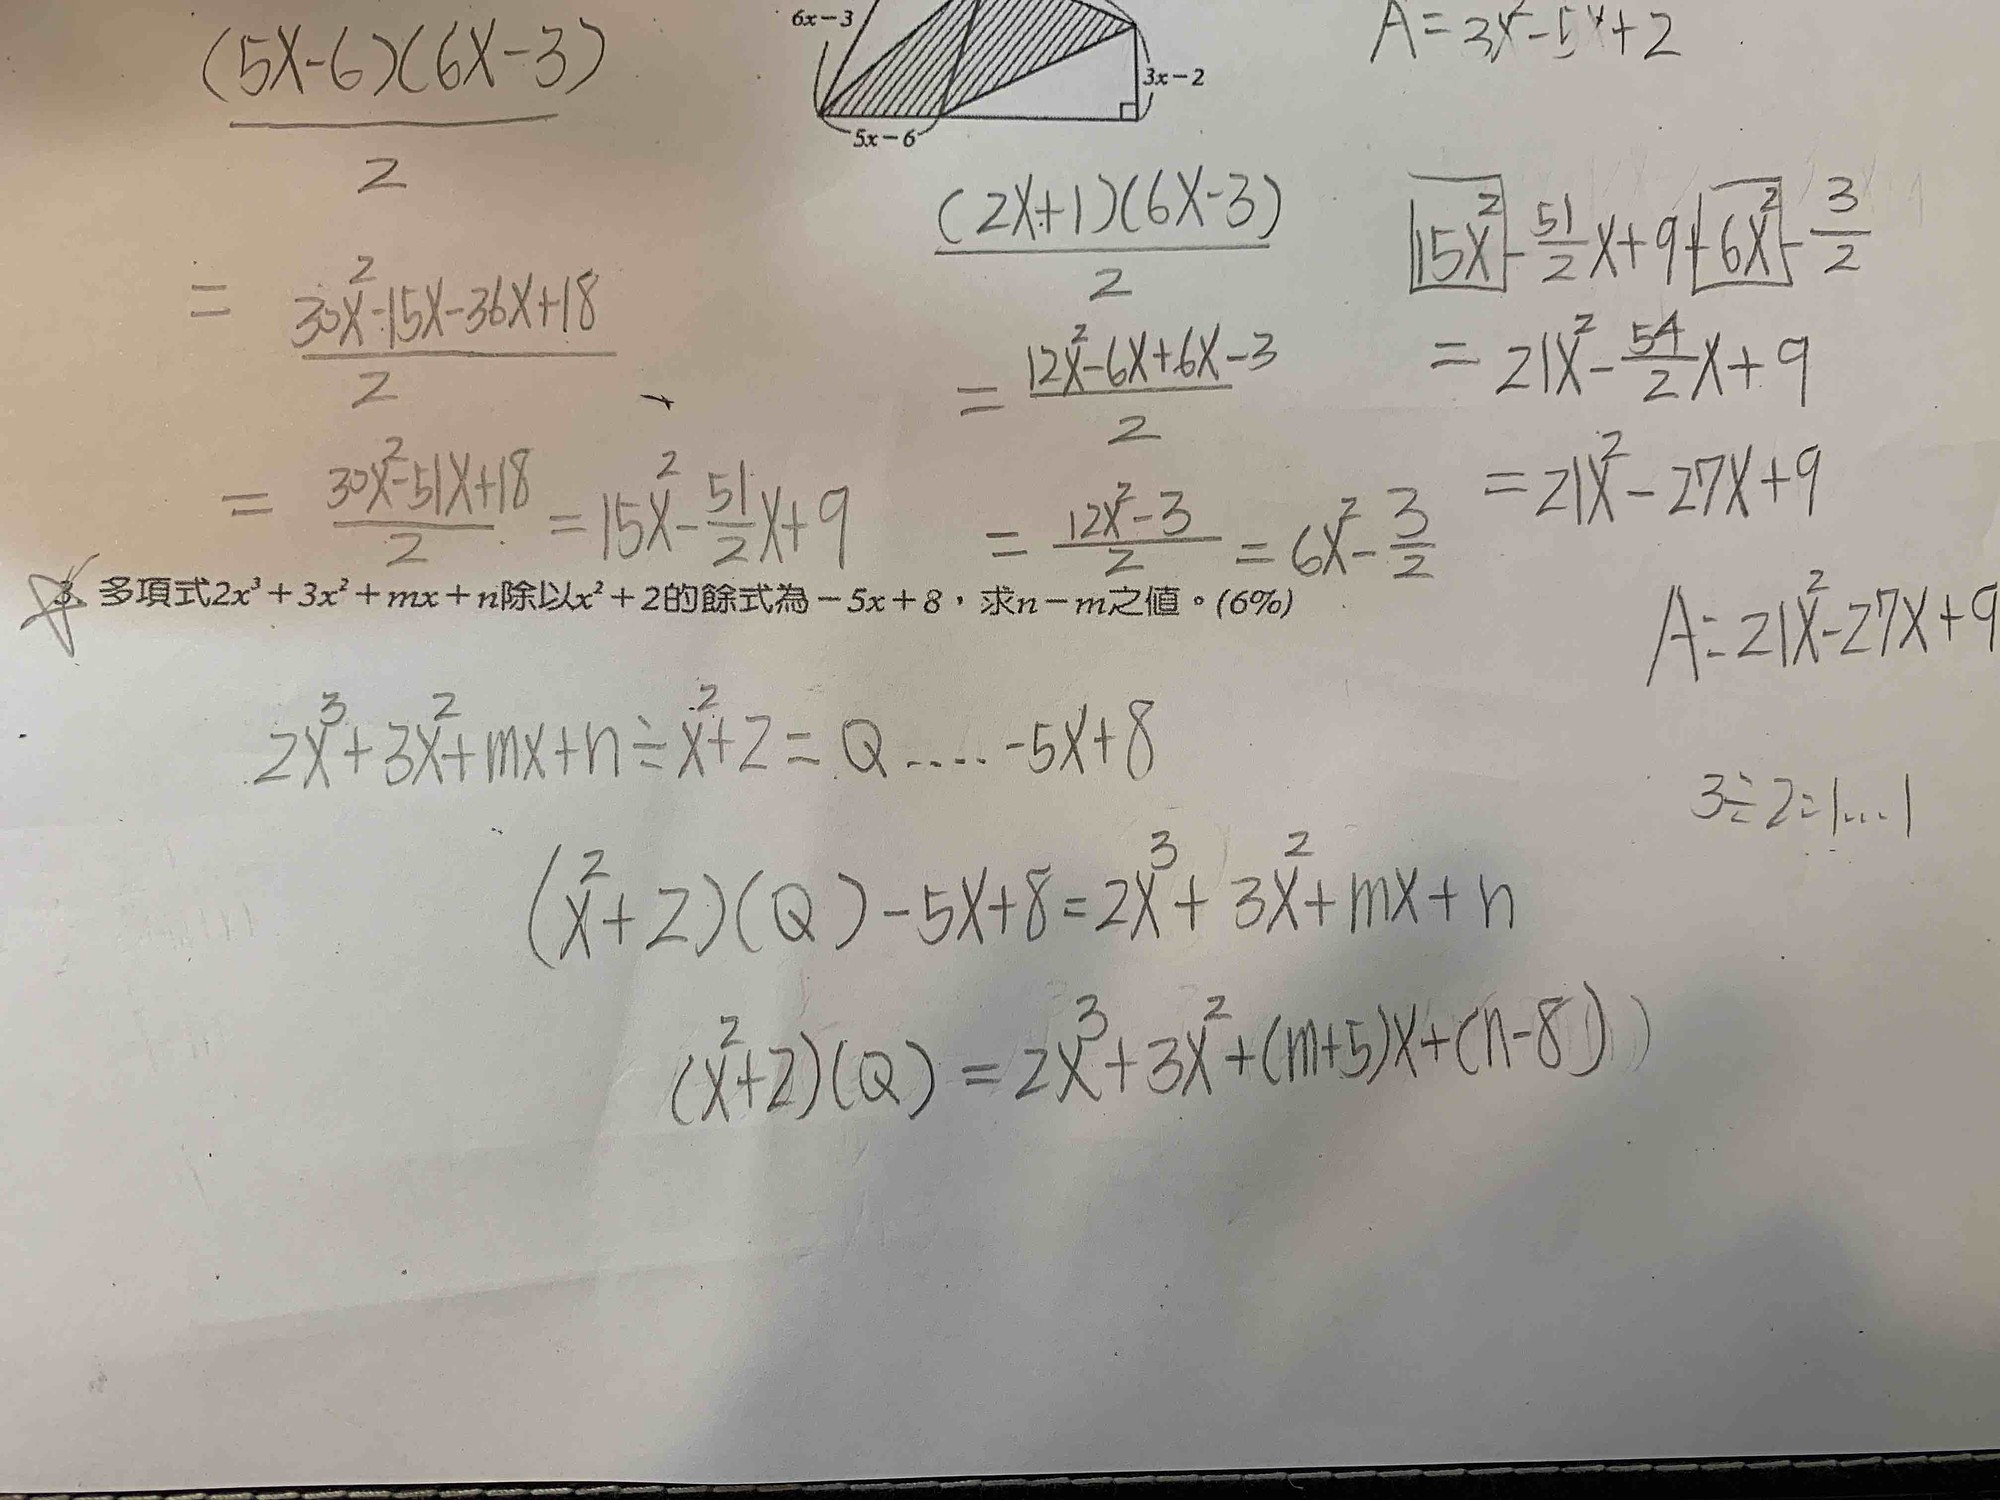 (5x-6)(6x-3)
2
= 30x²-15x-36x+18
2
= 30x²-51x+18
2
= 15x²-51/2x+9
6x-3
5x-6
3x-2
A=3x²-5x+2
(2x+1)(6x-3)
2
= 12x²-6x+6x-3
2
= 12x²-3
2
= 6x²-3/2
15x²-51/2x+9+6x²-3/2
= 21x²-54/2x+9
= 21x²-27x+9
A=21x²-27x+9
3 多項式2x³+3x²+mx+n除以x²+2的餘式為-5x+8,求n-m之值。(6%)
2x³+3x²+mx+n÷x²+2=Q....-5x+8
3÷2=1...1
(x²+2)(Q)-5x+8=2x³+3x²+mx+n
(x²+2)(Q)=2x³+3x²+(m+5)x+(n-8)